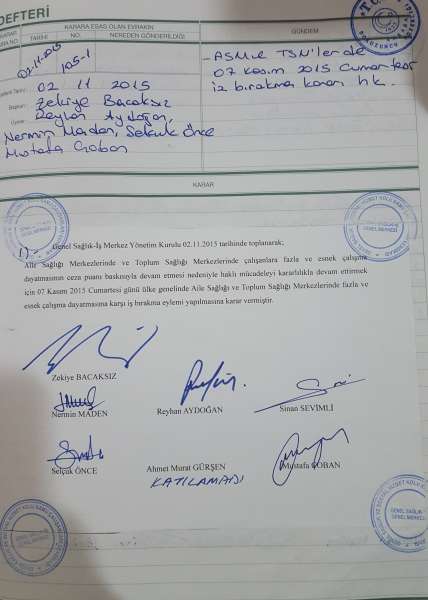 DEFTERİ
KARAR
KARARA ESAS OLAN EVRAKIN
GÜNDEM
TARİHİ
NO.
NEREDEN GÖNDERİLDİĞİ
02.11.2015
105-1
- ASM ve TSM'lerde
07 Kasım 2015 Cumartesi
iş bırakma kararı hk.
02 11 2015
Başkan: Zekiye Bacaksız
Reyhan Aydoğan,
Nermin Maden, Selçuk Önce
Mustafa Çoban
KARAR
1) - Genel Sağlık-İş Merkez Yönetim Kurulu 02.11.2015 tarihinde toplanarak;
Aile Sağlığı Merkezlerinde ve Toplum Sağlığı Merkezlerinde çalışanlara fazla ve esnek çalışma
dayatmasının ceza puanı baskısıyla devam etmesi nedeniyle haklı mücadeleyi kararlılıkla devam ettirmek
için 07 Kasım 2015 Cumartesi günü ülke genelinde Aile Sağlığı ve Toplum Sağlığı Merkezlerinde fazla ve
esnek çalışma dayatmasına karşı iş bırakma eylemi yapılmasına karar vermiştir.
Zekiye BACAKSIZ
Nermin MADEN
Reyhan AYDOĞAN
Sinan SEVİMLİ
Selçuk ÖNCE
Ahmet Murat GÜRŞEN
Mustafa ÇOBAN
KATILAMADI
GENEL SAĞLIK-İŞ
GENEL MERKEZİ